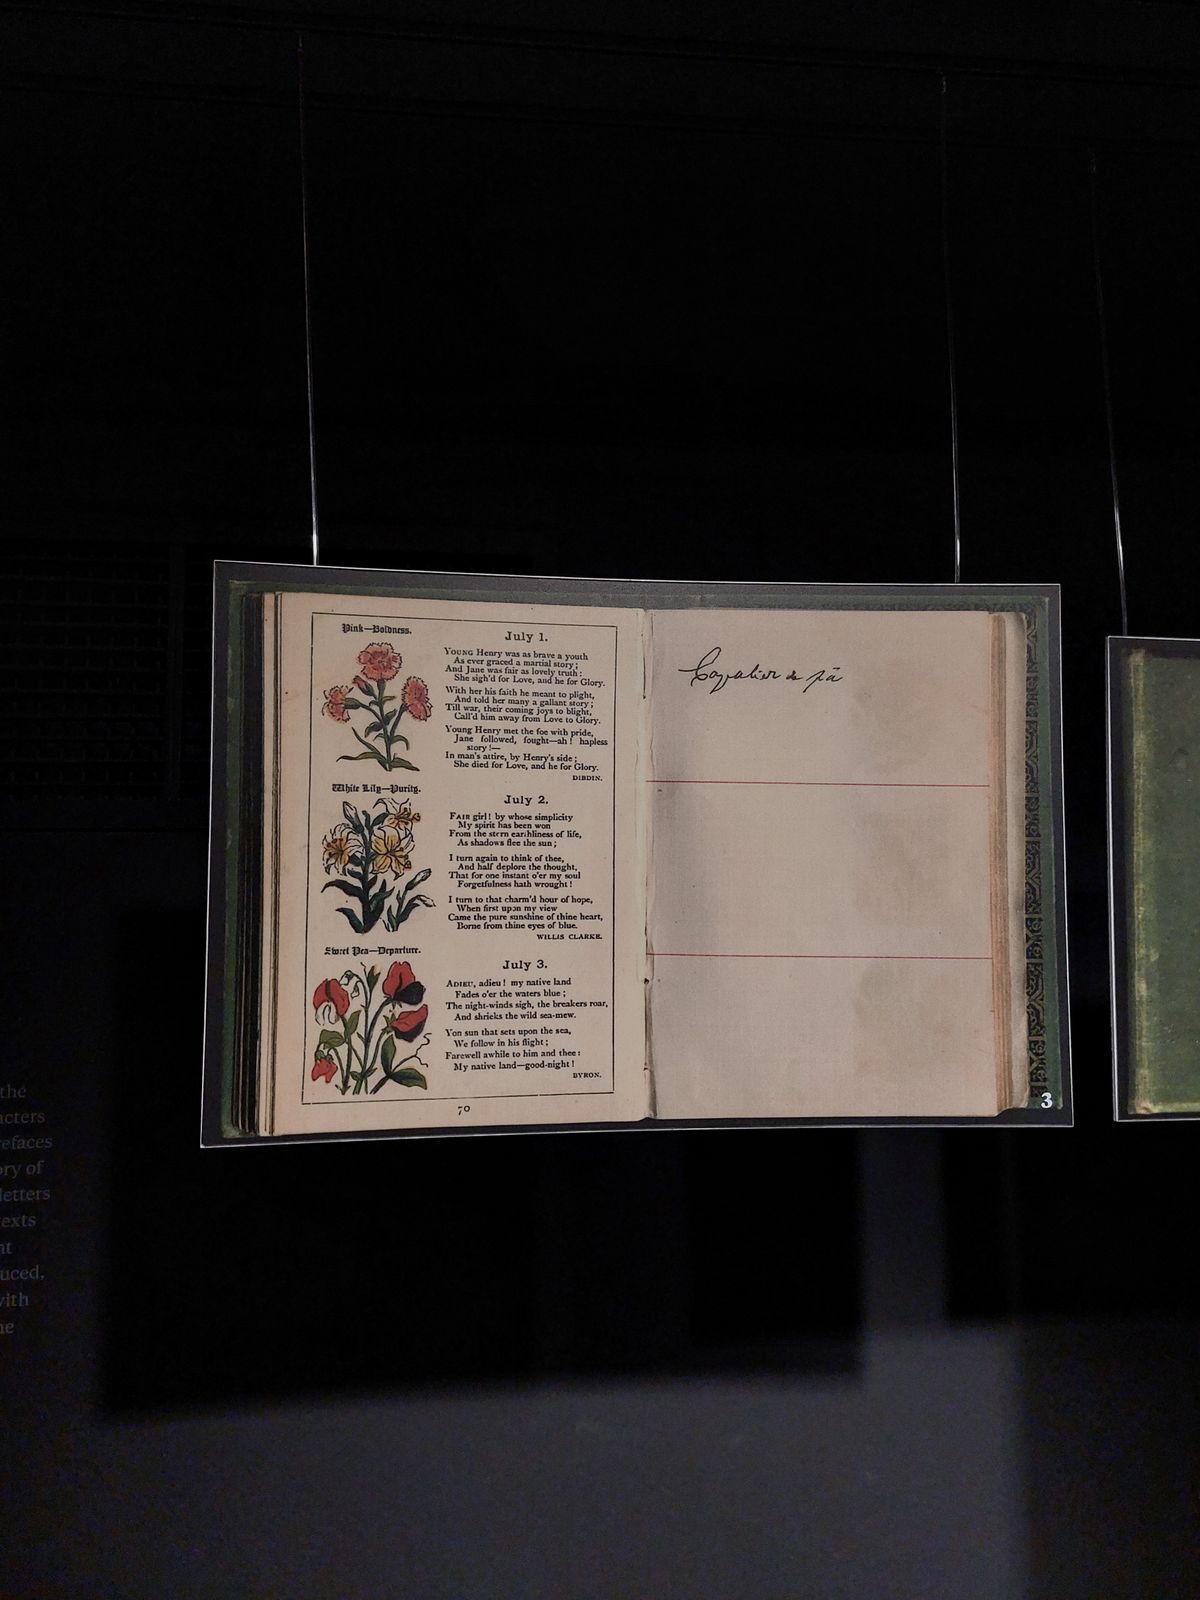 Pink—Boldness.
July 1.
YOUNG Henry was as brave a youth
As ever graced a martial story;
And Jane was fair as lovely truth:
She sigh'd for Love, and he for Glory.
With her his faith he meant to plight,
And told her many a gallant story;
Till war, their coming joys to blight,
Call'd him away from Love to Glory.
Young Henry met the foe with pride,
Jane followed, fought—ah! hapless
story!—
In man's attire, by Henry's side;
She died for Love, and he for Glory.
DIBDIN.
White Lily—Purity.
July 2.
FAIR girl! by whose simplicity
My spirit has been won
From the stern earthliness of life,
As shadows flee the sun;
I turn again to think of thee,
And half deplore the thought,
That for one instant o'er my soul
Forgetfulness hath wrought!
I turn to that charm'd hour of hope,
When first upon my view
Came the pure sunshine of thine heart,
Borne from thine eyes of blue.
WILLIS CLARKE.
Sweet Pea—Departure.
July 3.
ADIEU, adieu! my native land
Fades o'er the waters blue;
The night-winds sigh, the breakers roar,
And shrieks the wild sea-mew.
Yon sun that sets upon the sea,
We follow in his flight;
Farewell awhile to him and thee:
My native land—good-night!
BYRON.
70
3
the
acters
efaces
ory of
letters
exts
nt
uced,
with
he